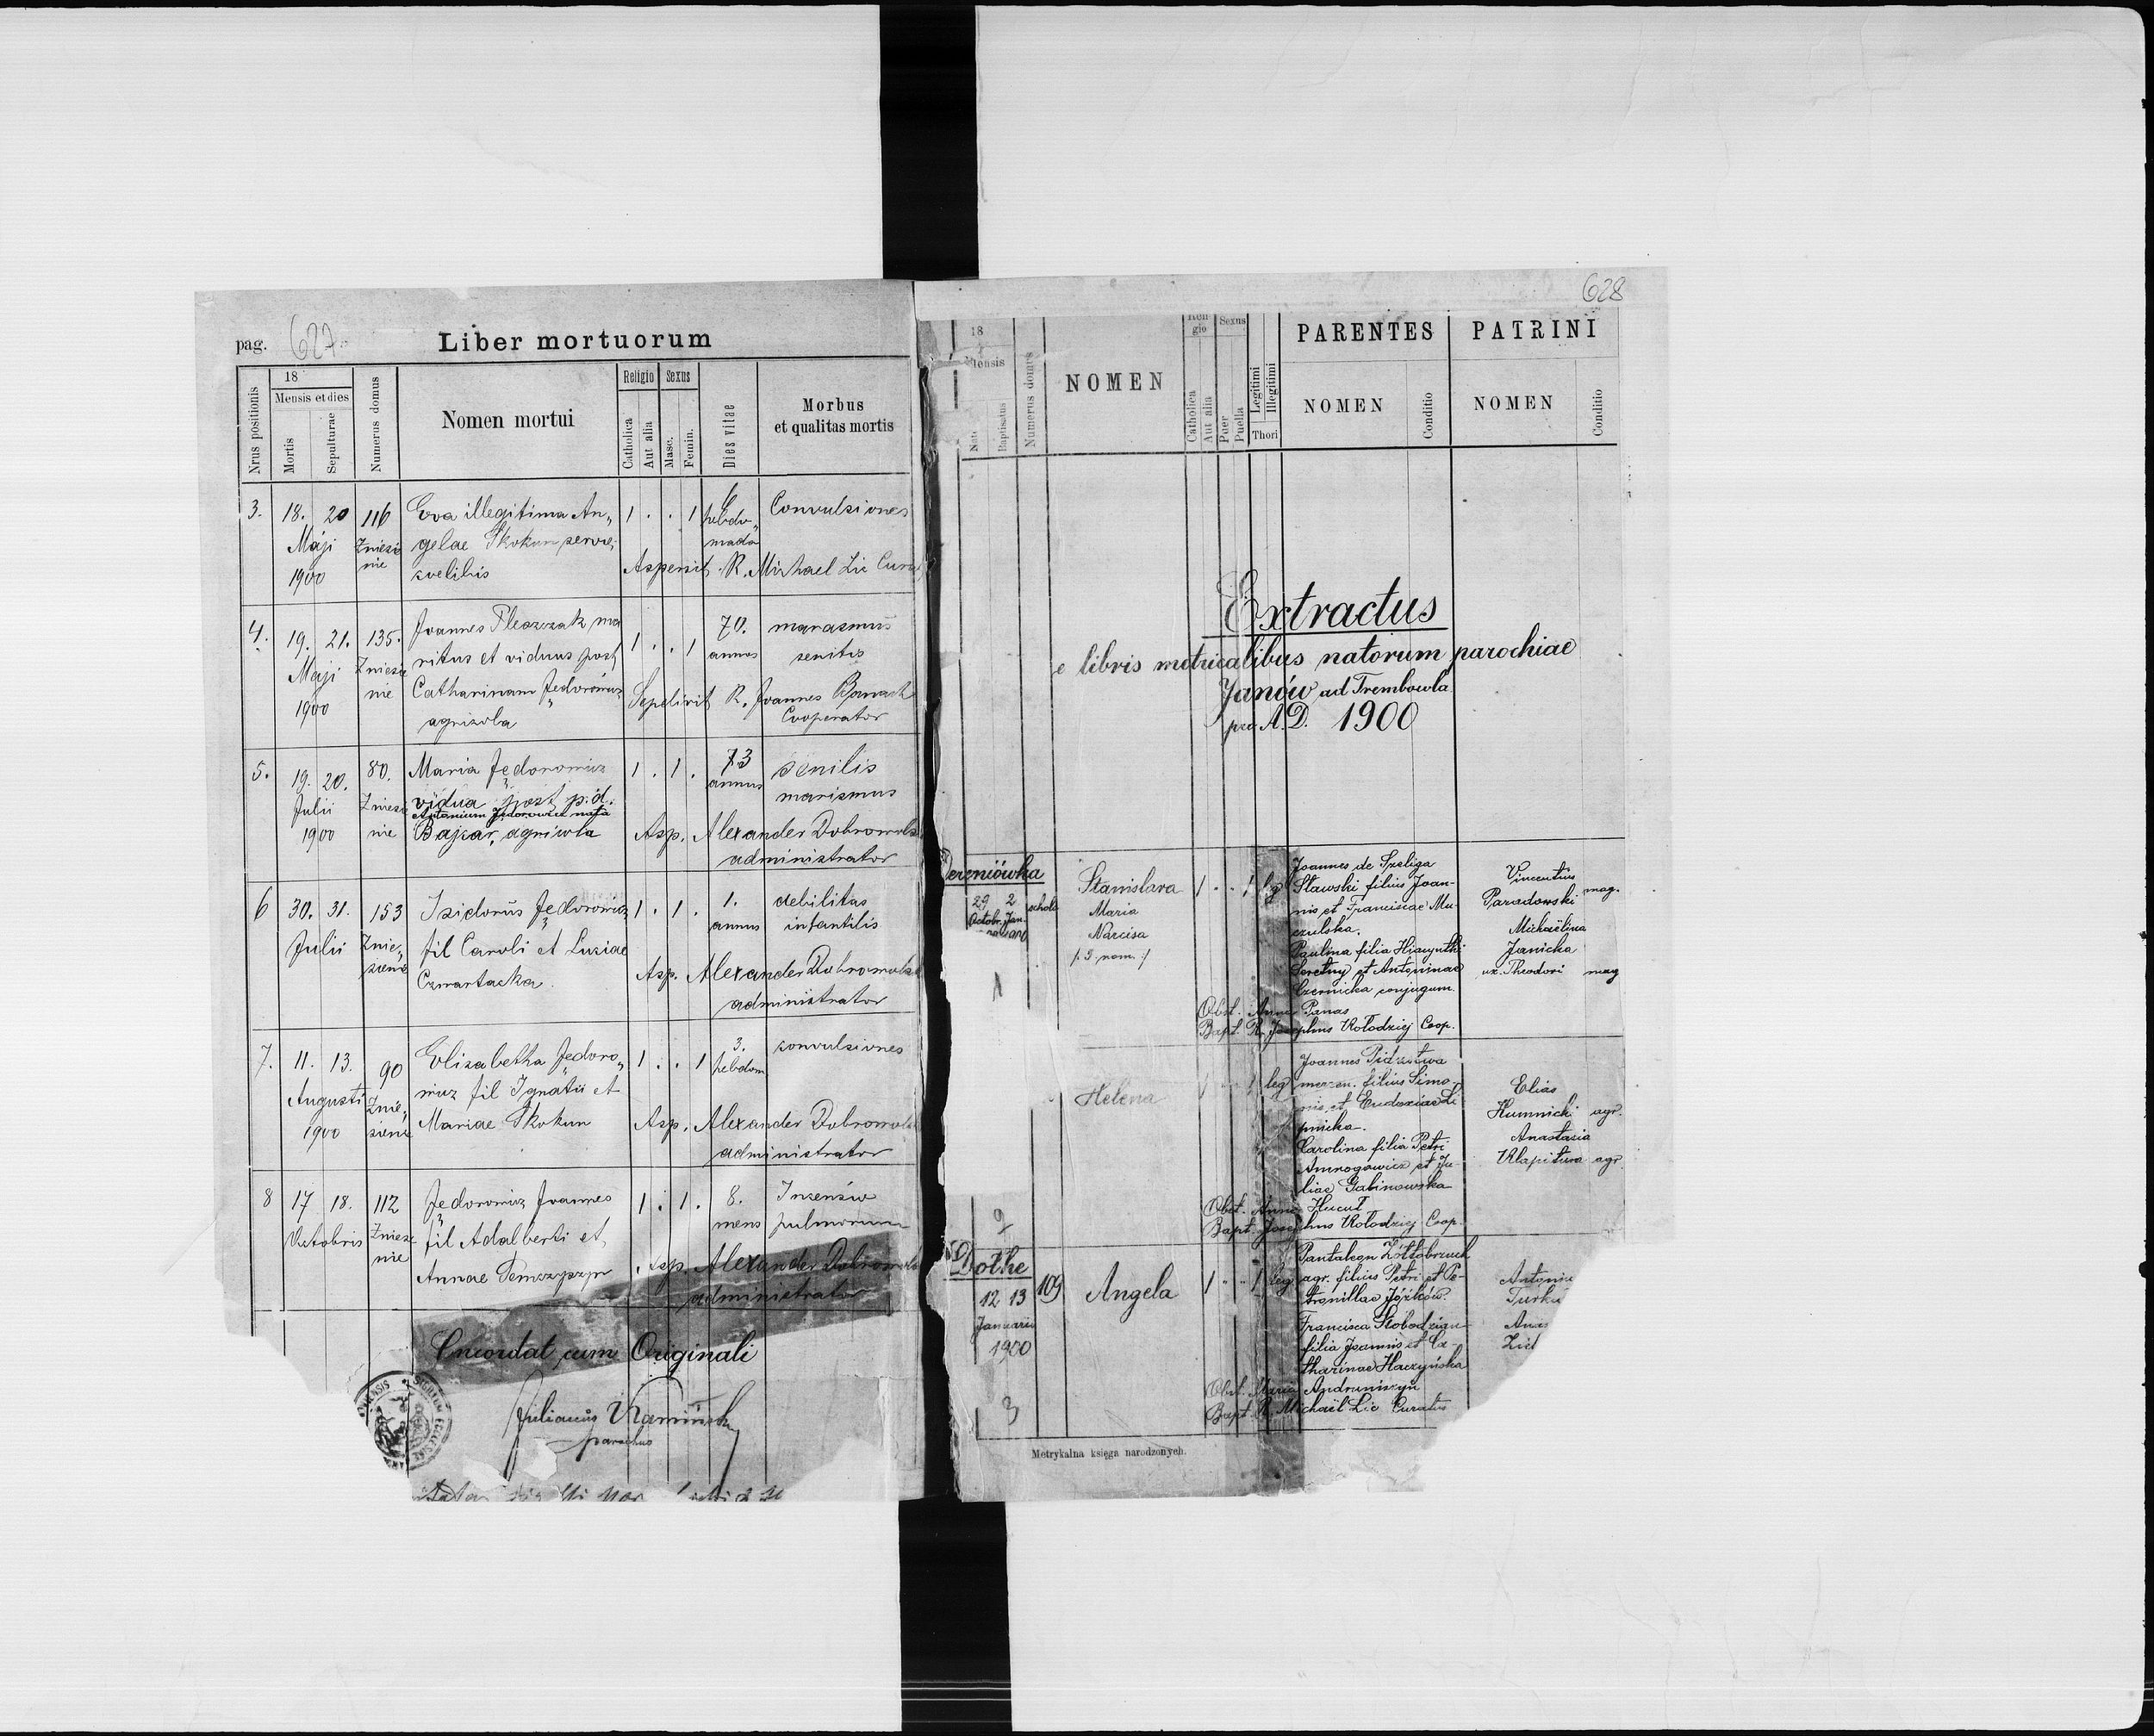 pag. 627.
Liber mortuorum
Nrus positionis
18
Mensis et dies
Mortis
Sepulturae
Numerus domus
Nomen mortui
Religio
Catholica
Aut alia
Sexus
Masc.
Femin.
Dies vitae
Morbus
et qualitas mortis
3. 18. 20 116 Eva illegitima An„ 1 . . 1 6 Convulsiones
Maji Zniesie gelae Skokun servae, hebdo„
1900 nie coelibis mada
Aspersit R. Michael Lic
4. 19. 21. 135. Joannes Pleszczak ma 1 . . 1 70. marasmus
Maji Zniesie ritus et viduus post annos senilis
1900 nie Catharinam Jedorowicz Sepelivit R. Joannes Banach
agricola Cooperator
5. 19. 20. 80. Maria Jedorowicz 1 . 1 . 73 senilis
Julii Zniesie vidua post p. d. annus marismus
Antonium Jedorowicz nata
1900 nie Bajcar, agricola Asp. Alexander Dobrowolski
administrator
6 30. 31. 153 Isidorus Jedorowicz 1 . 1 . 1. debilitas
Julii Znie„ fil Caroli et Luciae annus infantilis
sienie Czwartacka Asp. Alexander Dobrowolski
administrator
7. 11. 13. 90 Elisabetha Jedoro„ 1 . . 1 3. convulsiones
Augusti Znie„ wicz fil Ignatii et hebdom
1900 sienie Mariae Skokun Asp. Alexander Dobrowolski
administrator
8 17 18. 112 Jedorowicz Joannes 1 . 1 . 8.
Octobris Zniesie fil Adalberti et mens pulmorum
nie Annae Asp. Alexander Dobrowolski
administrator
Concordat cum Originali
Julianus Kamiński
parochus
628
18
Mensis
Nati
Baptisatus
Numerus domus
NOMEN
Religio
Catholica
Aut alia
Sexus
Puer
Puella
Legitimi
Illegitimi
Thori
PARENTES
NOMEN
Conditio
PATRINI
NOMEN
Conditio
Extractus
e libris metricalibus natorum parochiae
Janów ad Trembowla
pro A. D. 1900
Dereniówka
29 2 schola
Octobr. Jan.
Stanislava
Maria
Narcisa
/: 3 nom. :/
1 . . 1 leg
Joannes de Szeliga
Stawski filius Joan-
nis et Franciscae Mu-
czulska.
Paulina filia Hiacynthi
Seretny et Antoninae
Czernicka conjugum.
Vincentius
Paradowski mag.
Michaëlina
Janicka
ux. Theodori mag
Obst. Anna Panas
Bapt. R. Josephus Kołodziej Coop.
1
Helena
1 leg
Joannes
mercen. filius Simo-
nis et Eudoxiae Li
pnicka.
Carolina filia Petri
et Ju-
liae Gabinowska
Elias
Humnicki agr.
Anastasia
Klapitura agr.
Obst. Anna Hucuł
Bapt. Josephus Kołodziej Coop.
2
Dołhe
12 13 109
Januarii
1900
Angela
1 . . 1 leg
Pantaleon Żółtobrzuch
agr. filius Petri et Pe-
tronillae Józków.
Francisca Słobodzian
filia Joannis et Ca
tharinae Haczyńska
Antoniu
Turk
Anas
Obst. Maria Andruniszyn
Bapt. R. Michaël Lic Curatus
3
Metrykalna księga narodzonych.